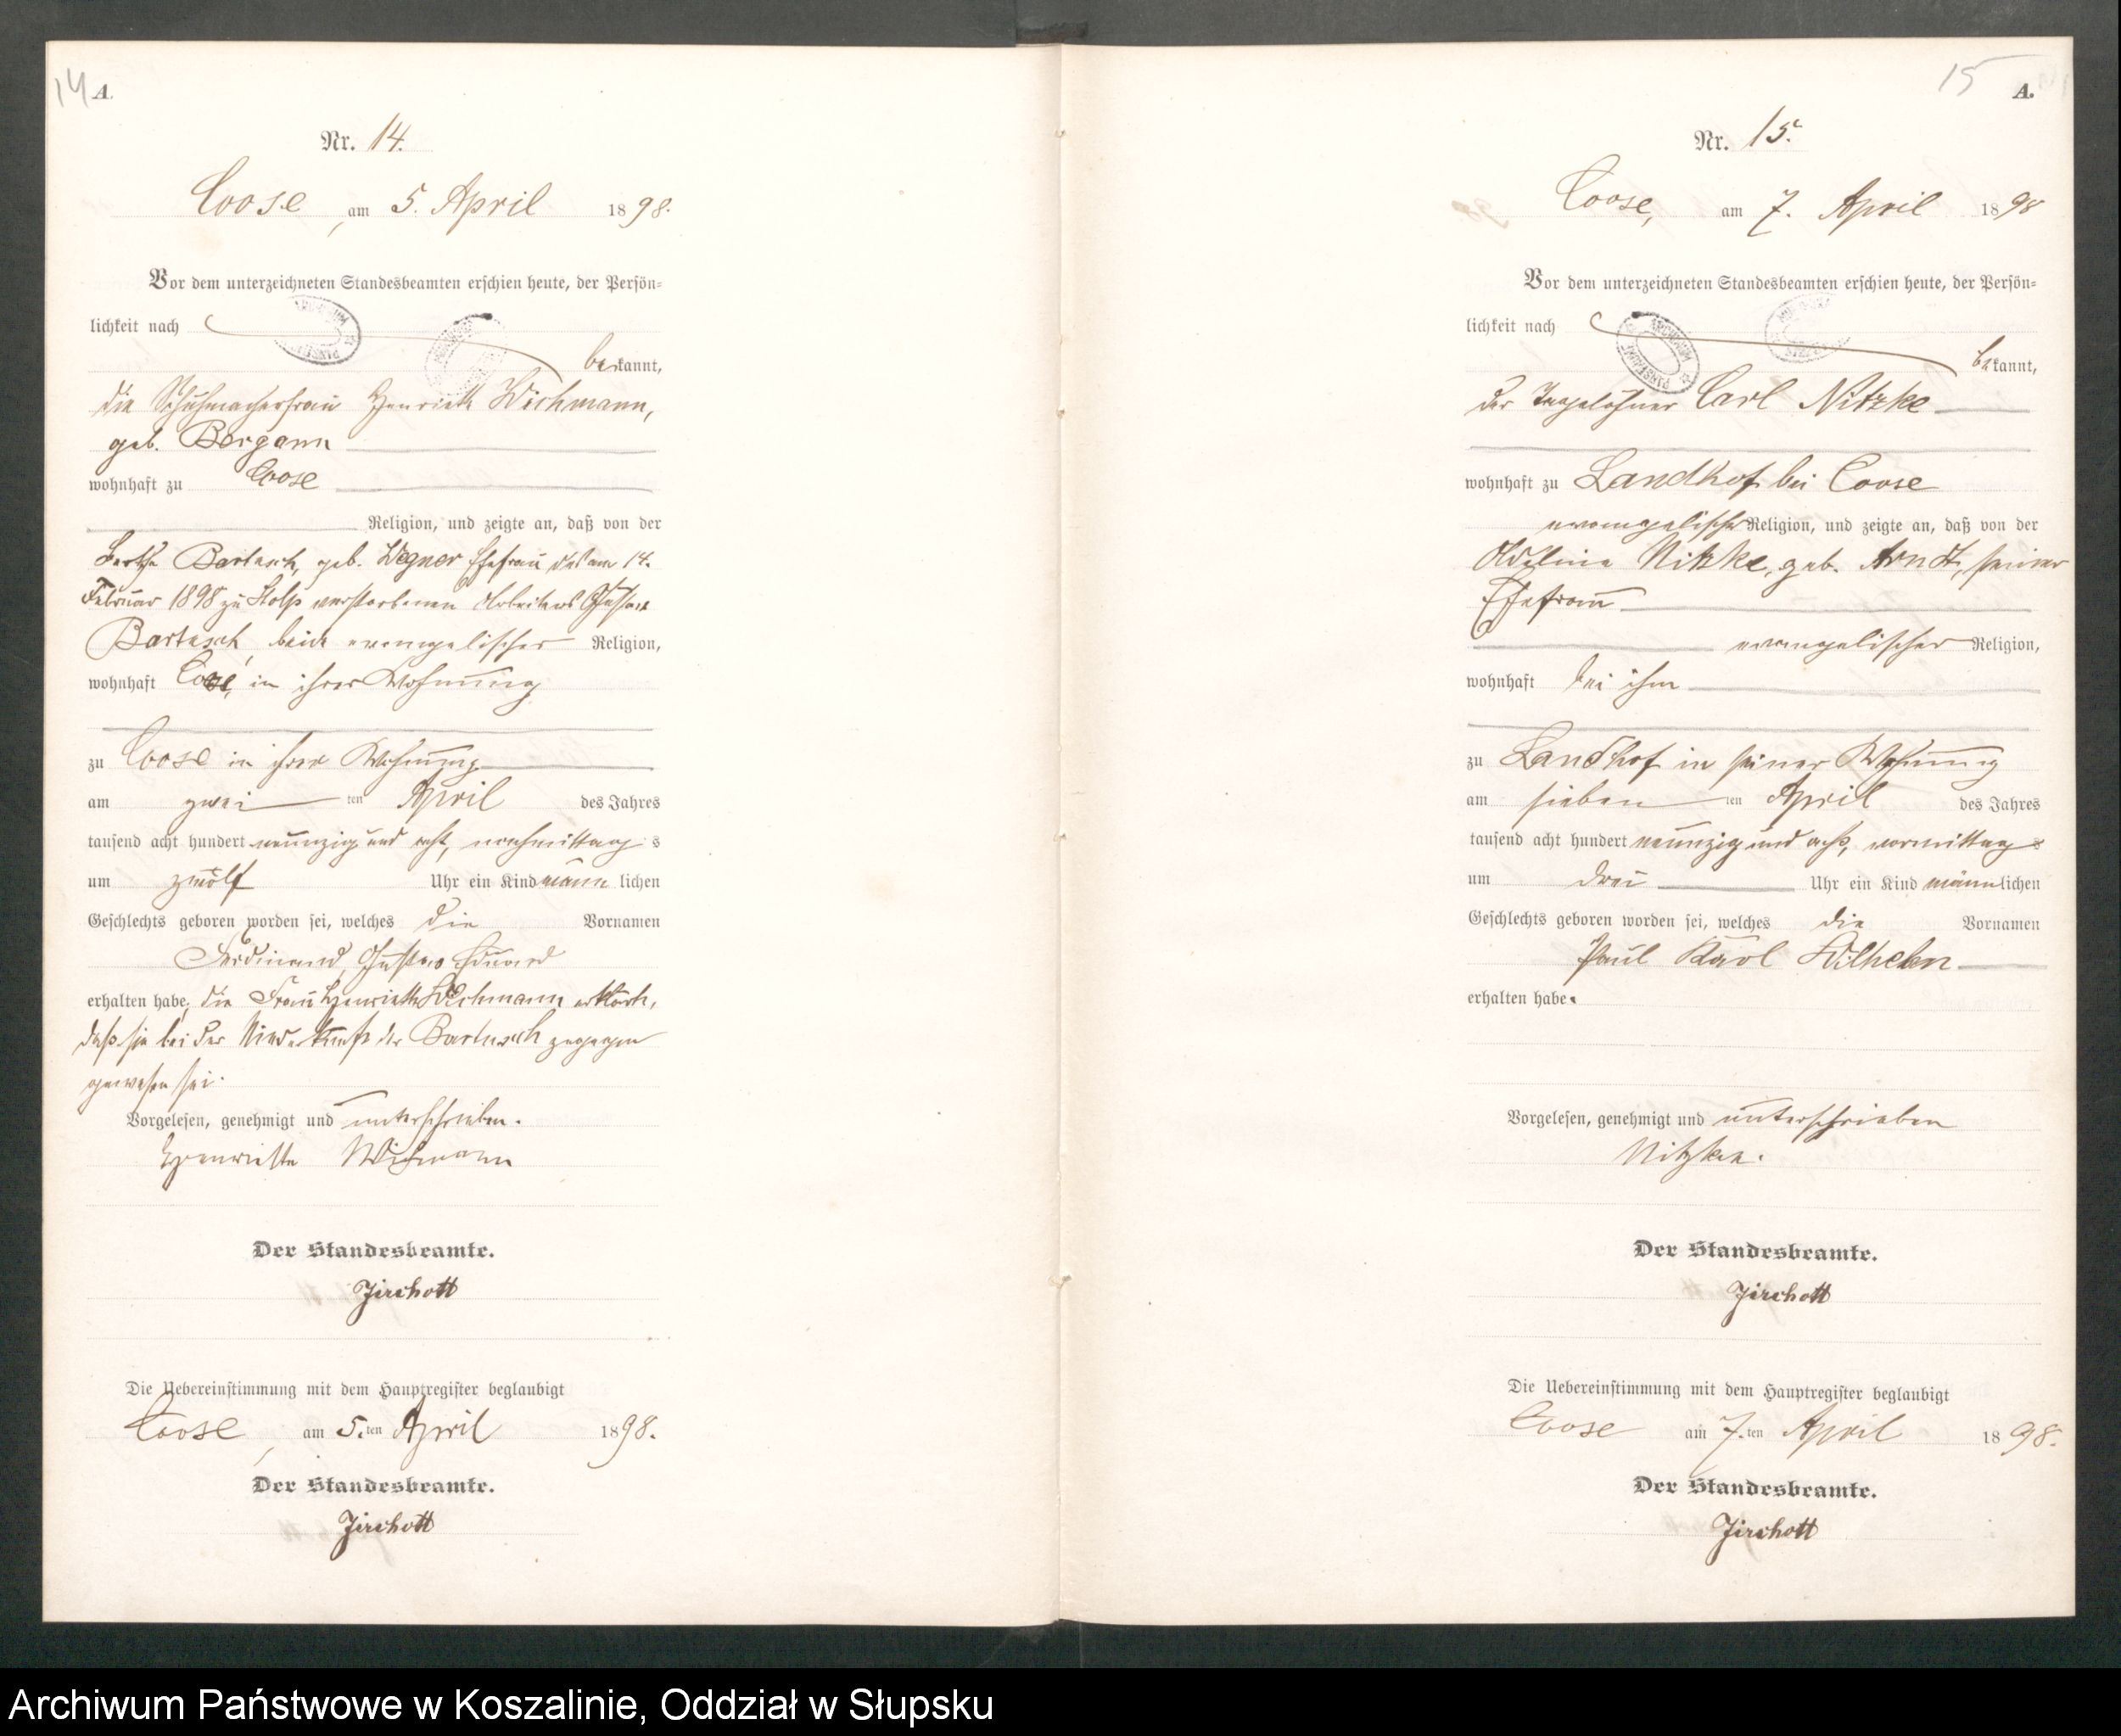 14 A.
Nr. 14.
Coose, am 5. April 1898.
Vor dem unterzeichneten Standesbeamten erschien heute, der Persön-
lichkeit nach
bekannt,
die Schuhmacherfrau Henriette Wichmann,
geb. Bergann
wohnhaft zu Coose
Religion, und zeigte an, daß von der
Bertha Bartasch, geb. Wegner Ehefrau des am 14.
Februar 1898 zu Stolp verstorbenen Arbeiters Gustav
Bartasch, beide evangelischer Religion,
wohnhaft Coose, in ihrer Wohnung
zu Coose in ihrer Wohnung
am zwei ten April des Jahres
tausend acht hundert neunzig und acht, nachmittag s
um zwölf Uhr ein Kind männ lichen
Geschlechts geboren worden sei, welches die Vornamen
Ferdinand, Gustav Eduard
erhalten habe, die Frau Henriette Wichmann erklärte,
daß sie bei der Niederkunft der Bartasch zugegen
gewesen sei.
Vorgelesen, genehmigt und unterschrieben.
Henriette Wichmann
Der Standesbeamte.
Jirchott
Die Uebereinstimmung mit dem Hauptregister beglaubigt
Coose, am 5.ten April 1898.
Der Standesbeamte.
Jirchott
15 A.
Nr. 15.
Coose, am 7. April 1898
Vor dem unterzeichneten Standesbeamten erschien heute, der Persön-
lichkeit nach
bekannt,
der Tagelöhner Carl Nitzke
wohnhaft zu Landhof bei Coose
evangelischer Religion, und zeigte an, daß von der
Adeline Nitzke, geb. Arndt, seiner
Ehefrau
evangelischer Religion,
wohnhaft bei ihm
zu Landhof in seiner Wohnung
am sieben ten April des Jahres
tausend acht hundert neunzig und acht, vormittag s
um drei Uhr ein Kind männlichen
Geschlechts geboren worden sei, welches die Vornamen
Paul Karl Wilhelm
erhalten habe.
Vorgelesen, genehmigt und unterschrieben
Nitzke.
Der Standesbeamte.
Jirchott
Die Uebereinstimmung mit dem Hauptregister beglaubigt
Coose am 7.ten April 1898.
Der Standesbeamte.
Jirchott
Archiwum Państwowe w Koszalinie, Oddział w Słupsku